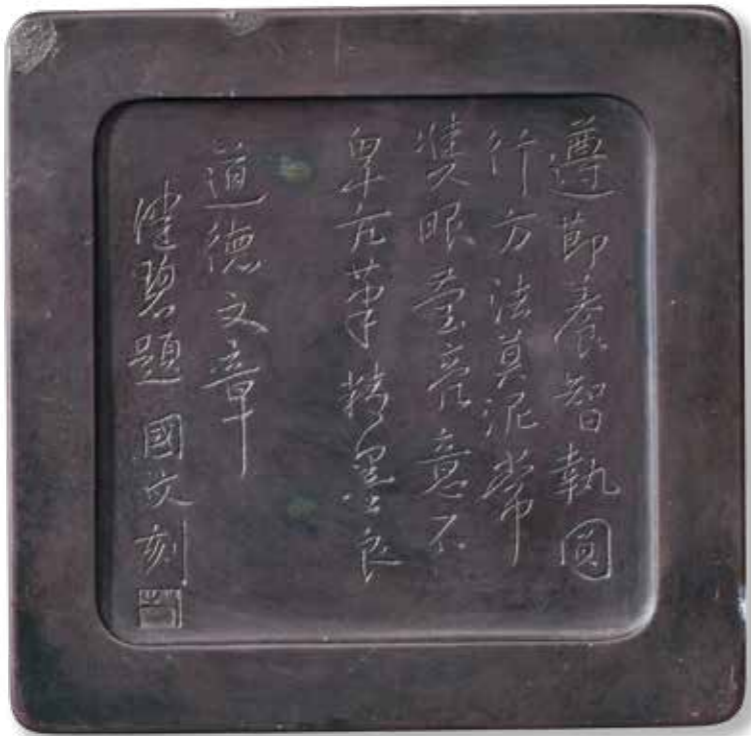 遵節養智執圓
行方法莫泥常
眼亮意不
卑亢筆精墨良
道德文章
碧題 國文刻